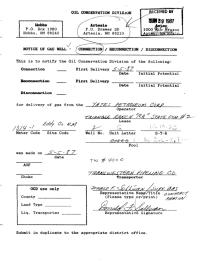 OIL CONSERVATION DIVISION
RECEIVED BY
Hobbs
P.O. Box 1980
Hobbs, NM 88240
Artesia
P.O. Drawer DD
Artesia, NM 88210
Aztec
1000 Rio Brazos
NOTICE OF GAS WELL CONNECTION / RECONNECTION / DISCONNECTION
This is to notify the Oil Conservation Division of the following:
Connection
First Delivery 5-5-87
Date
Initial Potential
Reconnection
First Delivery
Date
Initial Potential
Disconnection
for delivery of gas from the YATES PETROLEUM CORP
Operator
Lease
Meter Code
Site Code
Well No.
Unit Letter
S-T-R
Pool
was made on 5-5-87
Date
AOF
Choke
TRANSWESTERN PIPELINE CO.
Transporter
OCD use only
County
Land Type
Liq. Transporter
Representative Name/Title
(Please type or print)
Representative Signature
Submit in duplicate to the appropriate district office.